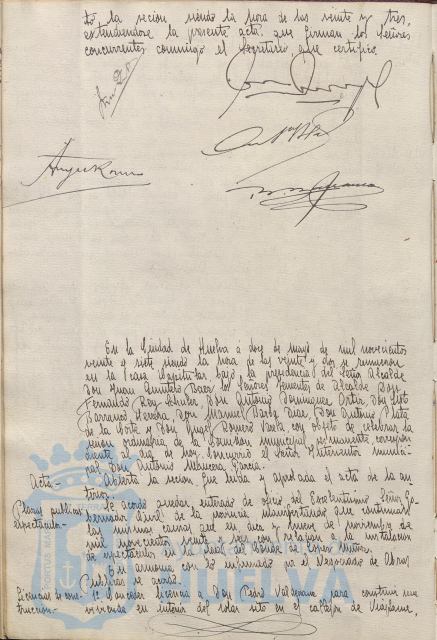 to la sesión siendo la hora de las veinte y tres,
extendiendose la presente acta, que firman los Señores
concurrentes conmigo el Secretario, que certifico.
En la Ciudad de Huelva á doce de mayo de mil novecientos
veinte y siete siendo la hora de las veinte y dos se reunieron
en la Casa Capitular bajo la presidencia del Señor Alcalde
Don Juan Quintero Baez los Señores Tenientes de Alcalde Don
Fernando Rey Don Antonio Dominguez Ortiz, Don
Barranco Herrera Don Manuel Barba Diaz, Don Antonio Plata
de la Corte y Don Angel Romero Varela con objeto de celebrar la
sesion ordinaria de la Comision municipal permanente correspon
diente al dia de hoy. Concurrió el Señor Interventor munici
pal Don Antonio Garcia.
Acta.- Abierta la sesion, fue leida y aprobada el acta de la an
terior.
Plazas publicas Se acordó quedar enterado de oficio del Excelentisimo Señor Go
espectaculos.- bernador Civil de la provincia manifestando que continuan
las mismas causas que en diez y nueve de Noviembre de
mil novecientos veinte y seis con relacion a la instalacion
de espectaculos
En armonia con lo informado por el Negociado de Obras
Publicas se acordó:
Licencias de cons- 1º Conceder licencia a Don Pedro Valderrama para construir una
truccion.- vivienda en interior del solar sito en el callejon de
Ayuntamiento
HUELVA
PORTUS MARIS